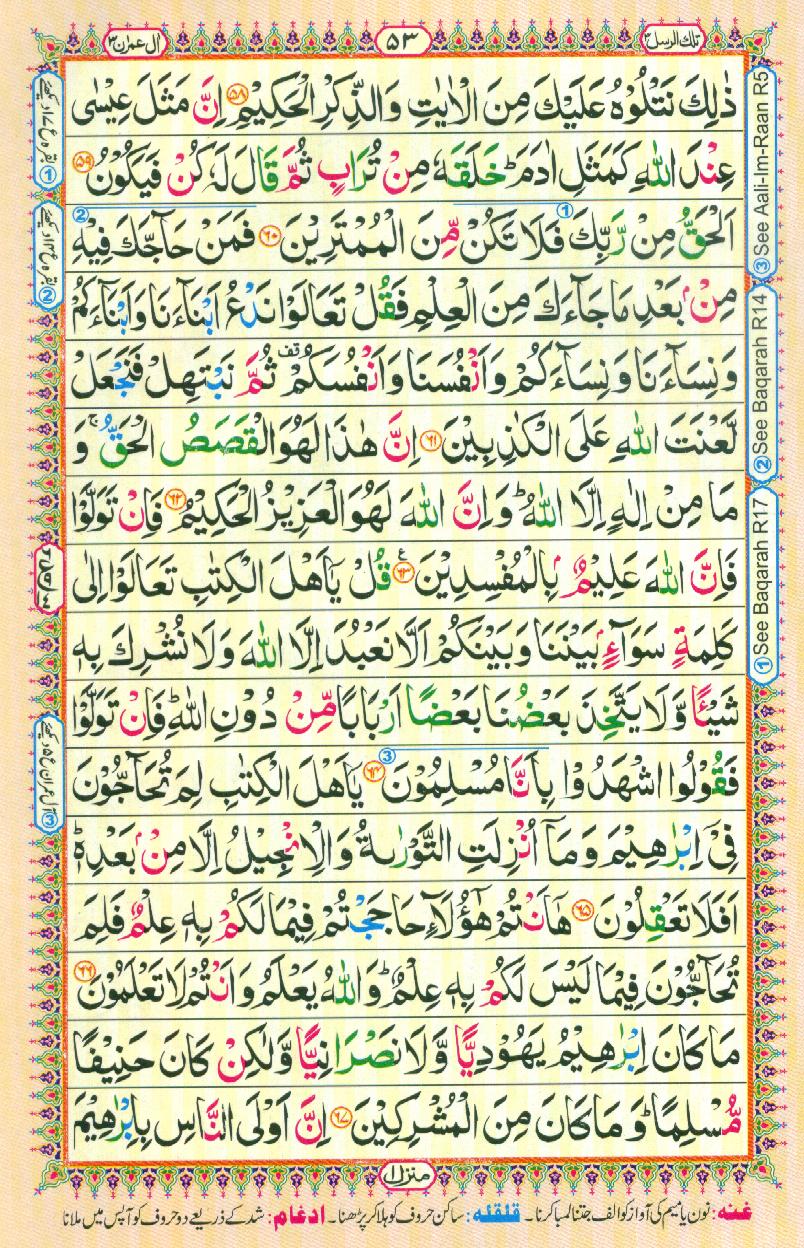 تلك الرسل ٣
٥٣
اٰل عمرٰن ٣
ذٰلِكَ نَتْلُوْهُ عَلَيْكَ مِنَ الْاٰيٰتِ وَالذِّكْرِ الْحَكِيْمِ ﴿٥٨﴾ اِنَّ مَثَلَ عِيْسٰى
عِنْدَ اللّٰهِ كَمَثَلِ اٰدَمَ ؕ خَلَقَهٗ مِنْ تُرَابٍ ثُمَّ قَالَ لَهٗ كُنْ فَيَكُوْنُ ﴿٥٩﴾
اَلْحَقُّ مِنْ رَّبِّكَ فَلَا تَكُنْ مِّنَ الْمُمْتَرِيْنَ ﴿٦٠﴾ فَمَنْ حَآجَّكَ فِيْهِ
مِنْۢ بَعْدِ مَا جَآءَكَ مِنَ الْعِلْمِ فَقُلْ تَعَالَوْا نَدْعُ اَبْنَآءَنَا وَاَبْنَآءَكُمْ
وَنِسَآءَنَا وَنِسَآءَكُمْ وَاَنْفُسَنَا وَاَنْفُسَكُمْ ࣞ ثُمَّ نَبْتَهِلْ فَنَجْعَلْ
لَّعْنَتَ اللّٰهِ عَلَى الْكٰذِبِيْنَ ﴿٦١﴾ اِنَّ هٰذَا لَهُوَ الْقَصَصُ الْحَقُّ ۚ وَ
مَا مِنْ اِلٰهٍ اِلَّا اللّٰهُ ؕ وَاِنَّ اللّٰهَ لَهُوَ الْعَزِيْزُ الْحَكِيْمُ ﴿٦٢﴾ فَاِنْ تَوَلَّوْا
فَاِنَّ اللّٰهَ عَلِيْمٌۢ بِالْمُفْسِدِيْنَ ﴿٦٣﴾ قُلْ يٰۤاَهْلَ الْكِتٰبِ تَعَالَوْا اِلٰى
كَلِمَةٍ سَوَآءٍۭ بَيْنَنَا وَبَيْنَكُمْ اَلَّا نَعْبُدَ اِلَّا اللّٰهَ وَلَا نُشْرِكَ بِهٖ
شَيْـًٔا وَّلَا يَتَّخِذَ بَعْضُنَا بَعْضًا اَرْبَابًا مِّنْ دُوْنِ اللّٰهِ ؕ فَاِنْ تَوَلَّوْا
فَقُوْلُوا اشْهَدُوْا بِاَنَّا مُسْلِمُوْنَ ﴿٦٤﴾ يٰۤاَهْلَ الْكِتٰبِ لِمَ تُحَآجُّوْنَ
فِيْۤ اِبْرٰهِيْمَ وَمَاۤ اُنْزِلَتِ التَّوْرٰىةُ وَالْاِنْجِيْلُ اِلَّا مِنْۢ بَعْدِهٖ ؕ
اَفَلَا تَعْقِلُوْنَ ﴿٦٥﴾ هٰۤاَنْتُمْ هٰۤؤُلَآءِ حَاجَجْتُمْ فِيْمَا لَكُمْ بِهٖ عِلْمٌ فَلِمَ
تُحَآجُّوْنَ فِيْمَا لَيْسَ لَكُمْ بِهٖ عِلْمٌ ؕ وَاللّٰهُ يَعْلَمُ وَاَنْتُمْ لَا تَعْلَمُوْنَ ﴿٦٦﴾
مَا كَانَ اِبْرٰهِيْمُ يَهُوْدِيًّا وَّلَا نَصْرَانِيًّا وَّلٰكِنْ كَانَ حَنِيْفًا
مُّسْلِمًا ؕ وَمَا كَانَ مِنَ الْمُشْرِكِيْنَ ﴿٦٧﴾ اِنَّ اَوْلَى النَّاسِ بِاِبْرٰهِيْمَ
③ See Aali-Im-Raan R5
② See Baqarah R14
① See Baqarah R17
① بقرہ ع ۱۷ دیکھئے
② بقرہ ع ۱۴ دیکھئے
③ آل عمران ع ۵ دیکھئے
منزل ۱
غنہ: نون یا میم کی آواز کو الف جتنا لمبا کرنا۔ قلقلہ: ساکن حروف کو ہلا کر پڑھنا۔ ادغام: شد کے ذریعے دو حروف کو آپس میں ملانا